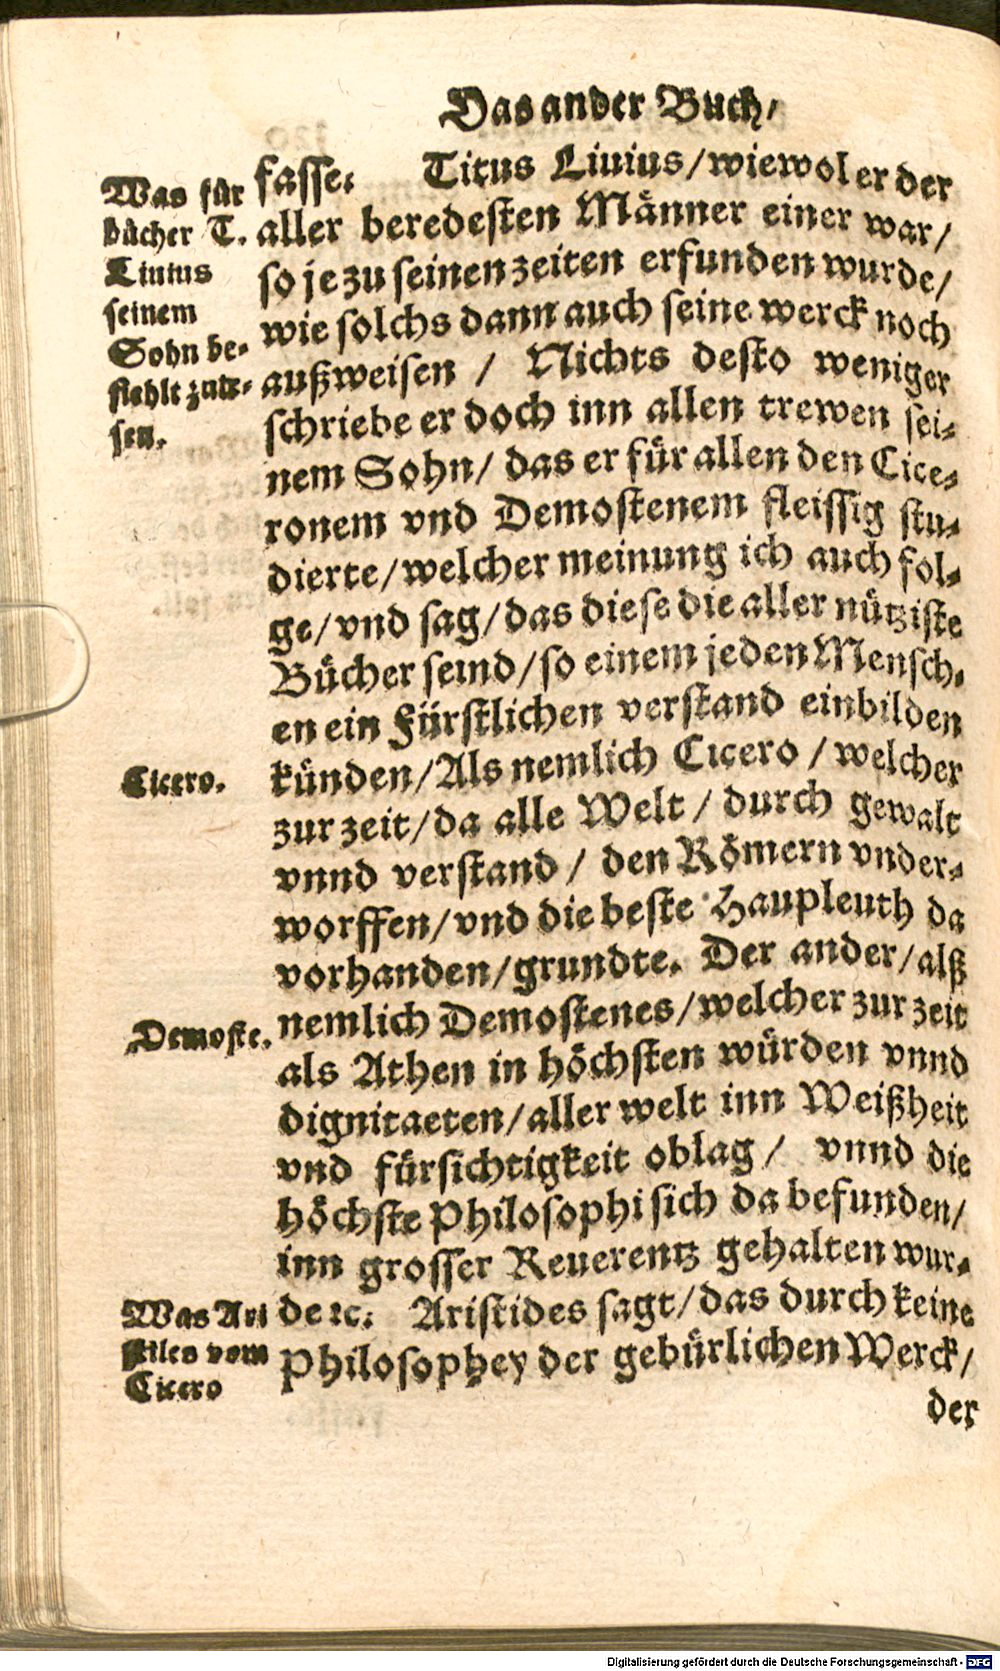 Das ander Buch/
Was für
bücher T.
Liuius
seinem
Sohn be-
fiehlt zule-
sen.
fasse. Titus Liuius/wiewol er der
aller beredesten Männer einer war/
so je zu seinen zeiten erfunden wurde/
wie solchs dann auch seine werck noch
außweisen / Nichts desto weniger
schriebe er doch inn allen trewen sei-
nem Sohn/ das er für allen den Cice-
ronem vnd Demostenem fleissig stu-
dierte/welcher meinung ich auch fol-
ge/vnd sag/das diese die aller nütziste
Bücher seind/so einem jeden Mensch-
en ein Fürstlichen verstand einbilden
Cicero.
künden/Als nemlich Cicero / welcher
zur zeit/da alle Welt / durch gewalt
vnnd verstand / den Römern vnder-
worffen/vnd die beste Haupleuth da
vorhanden/grundte. Der ander/alß
Demoste.
nemlich Demostenes/welcher zur zeit
als Athen in höchsten würden vnnd
dignitaeten/aller welt inn Weißheit
vnd fürsichtigkeit oblag / vnnd die
höchste Philosophi sich da befunden/
inn grosser Reuerentz gehalten wur-
Was Ari
stiles vom
Cicero
de ꝛc. Aristides sagt/das durch keine
Philosophey der gebürlichen Werck/
der
Digitalisierung gefördert durch die Deutsche Forschungsgemeinschaft - DFG